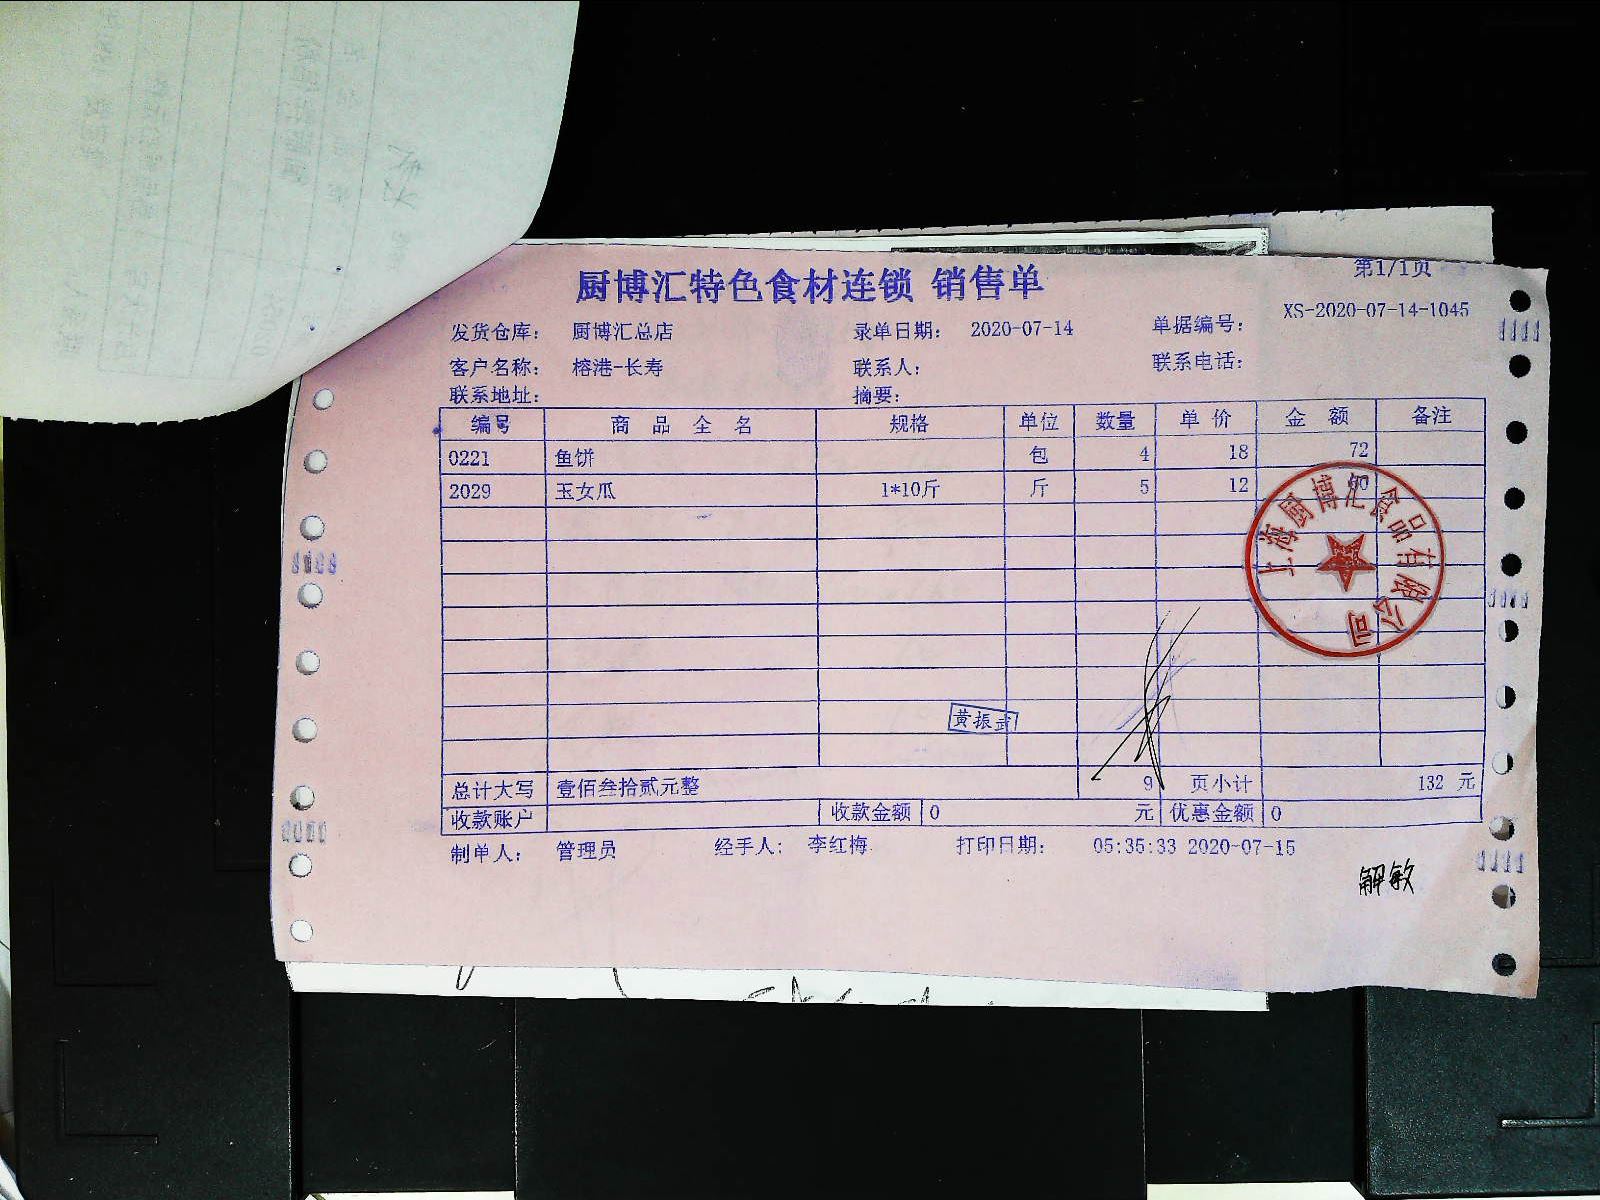 厨博汇特色食材连锁 销售单
第1/1页
发货仓库： 厨博汇总店 录单日期： 2020-07-14 单据编号： XS-2020-07-14-1045
客户名称： 榕港-长寿 联系人： 联系电话：
联系地址： 摘要：
编号 商品全名 规格 单位 数量 单价 金额 备注
0221 鱼饼 包 4 18 72
2029 玉女瓜 1*10斤 斤 5 12 60
上海厨博汇食品有限公司
黄振武
总计大写 壹佰叁拾贰元整 9 页小计 132 元
收款账户 收款金额 0 元 优惠金额 0
制单人： 管理员 经手人： 李红梅 打印日期： 05:35:33 2020-07-15
解敏